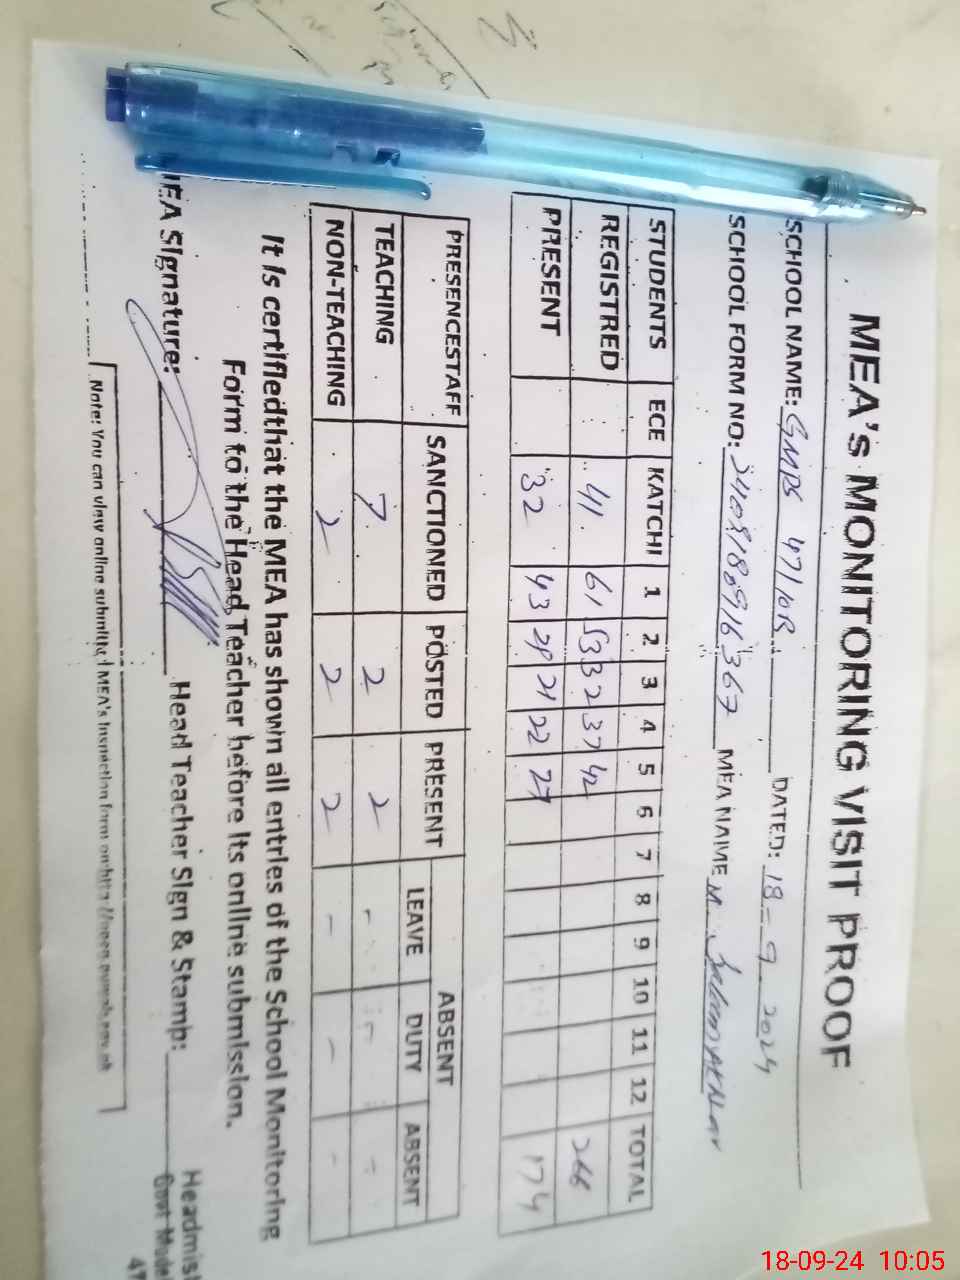 MEA's MONITORING VISIT PROOF
SCHOOL NAME: GMPS 47/10R DATED: 18-9-2024
SCHOOL FORM NO: MEA NAME M.
STUDENTS ECE KATCHI 1 2 3 4 5 6 7 8 9 10 11 12 TOTAL
REGISTRED 41 61 53 32 37 42 266
PRESENT 32 43 29 21 22 27 174
PRESENCESTAFF SANCTIONED POSTED PRESENT ABSENT
LEAVE DUTY ABSENT
TEACHING 7 2 2 - - -
NON-TEACHING 2 2 2 - - -
It is certifiedthat the MEA has shown all entries of the School Monitoring
Form to the Head Teacher before its online submission.
MEA Signature: Head Teacher Sign & Stamp:
Note: You can view online submitted MEA's Inspection form on
Govt
47
18-09-24 10:05